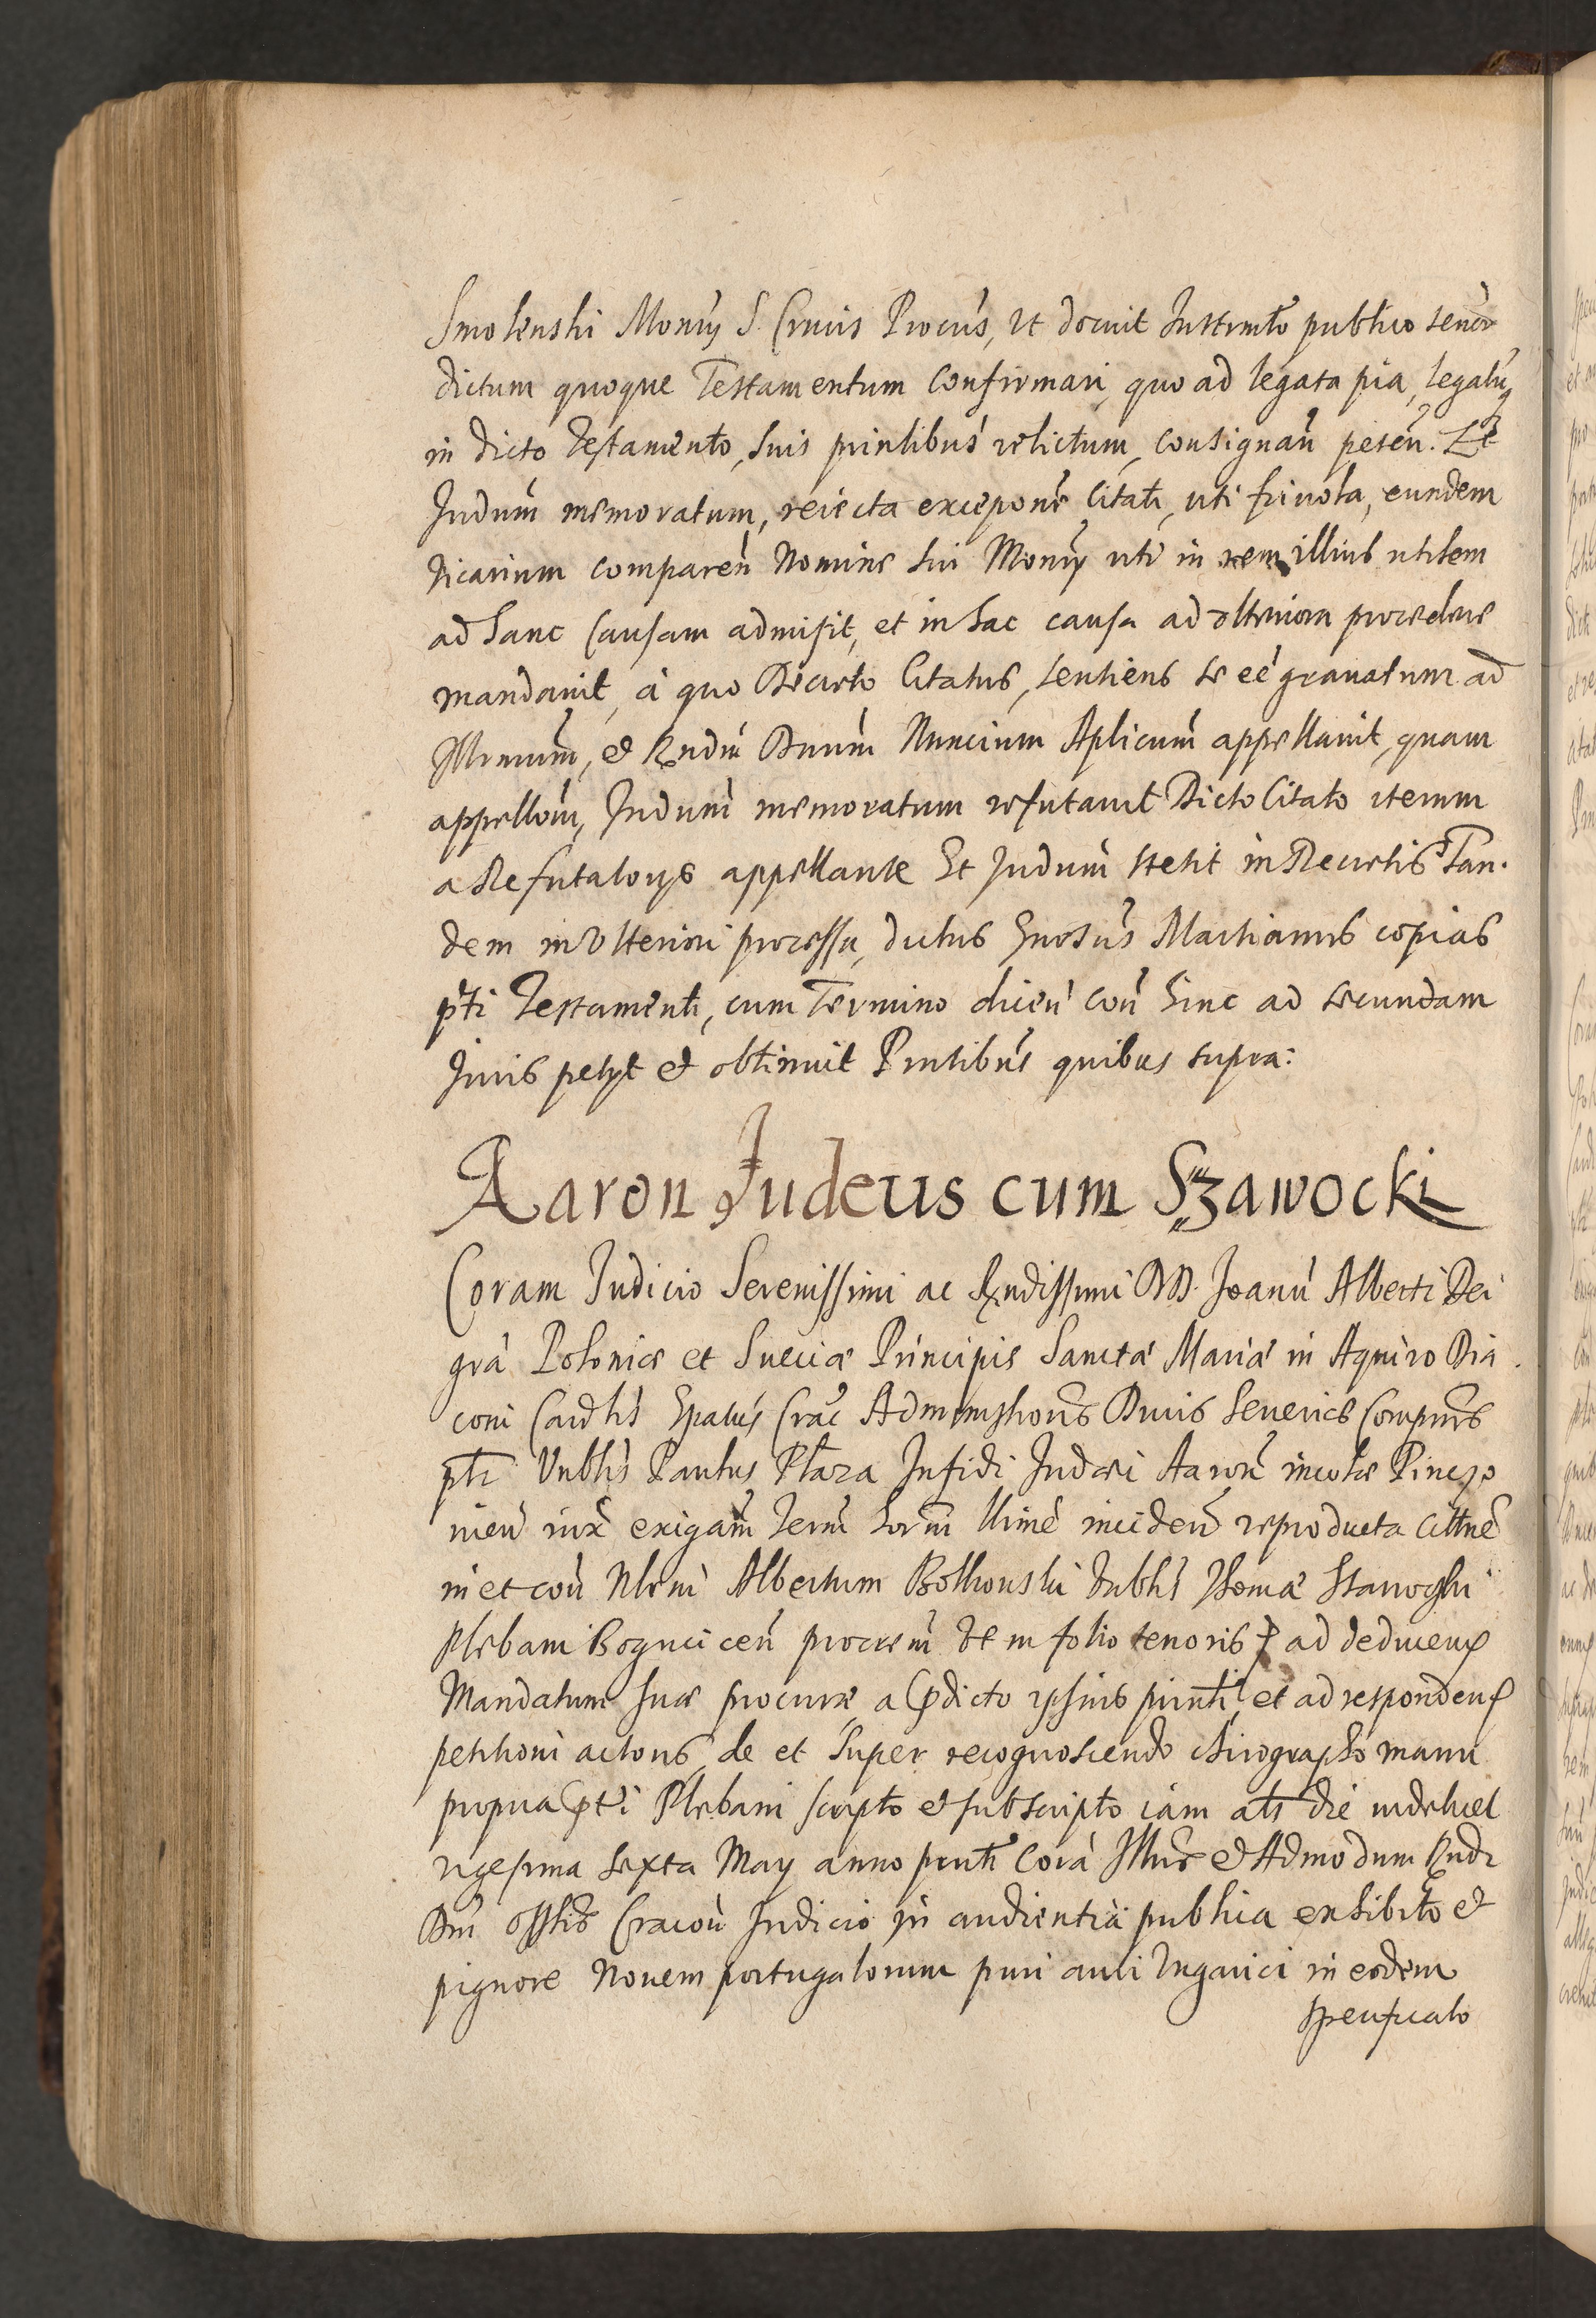 Smolenski Monrÿ S. Crucis Procus, ut docuit Instrmto publico
dictum quoque Testamentum confirmari, quo ad legata pia, legatũq
in dicto Testamento, suis prinlibus relictum, consignañ peteñ. Et
Judum memoratum, reiecta excepone Citati, uti friuola, eundem
vicarium compareñ Nomine sui Monrÿ uti in rem illius utilem
ad hanc Causam admisit, et in hac causa ad vlteriora procedere
mandauit, à quo Decreto Citatus, sentiens se eè grauatum ad
Illrmum, et Rndm Dnum Nuncium Aplicum appellauit, quam
appellom, Judum memoratum refutauit Dicto Citato iterum
a Refutatorijs appellante Et Judum stetit in Decretis Tan.
dem in Vlteriori processu, dictus Martianus copias
pti Testamenti, cum Termino diceñ coñ hinc ad secundam
Juris petÿt et obtinuit Pntibus quibus supra:
Aaron Judeus cum Szawocki
Coram Judicio Serenissimi ac Rndissimi DD. Joanñ Alberti Dei
grà Poloniæ et Sueciæ Principis Sanctæ Mariæ in Aquiro Dia
coni Cardlis Epatus Crac Administhoris Ducis Seueriæ Comprens
pti Vnblis Paulus Ptaza Infidi Judæi Aaron incolæ Pinczo
uieñ iux exigam Term horm incideñ reproducta cittne
in et coñ Nlem Albertum Bolkonski Vnblis Thomæ Stawoyski
Plebani Bogucicen procrem in folio tenoris ad deduceñ
Mandatum suæ procuræ a pdicto ipsius et ad respondeñ
petitioni actoris, de et super recognoscendo chirographo manu
propria pti Plebani scripto et subscripto iam als die videlicet
vigesima sexta May anno pnti Corà Illris et Admodum Rndi
Dni Offlis Cracoñ Judicio in audientia publica exhibito et
pignore Nouem portugalorum puri auri Vngarici in eodem
speuficato